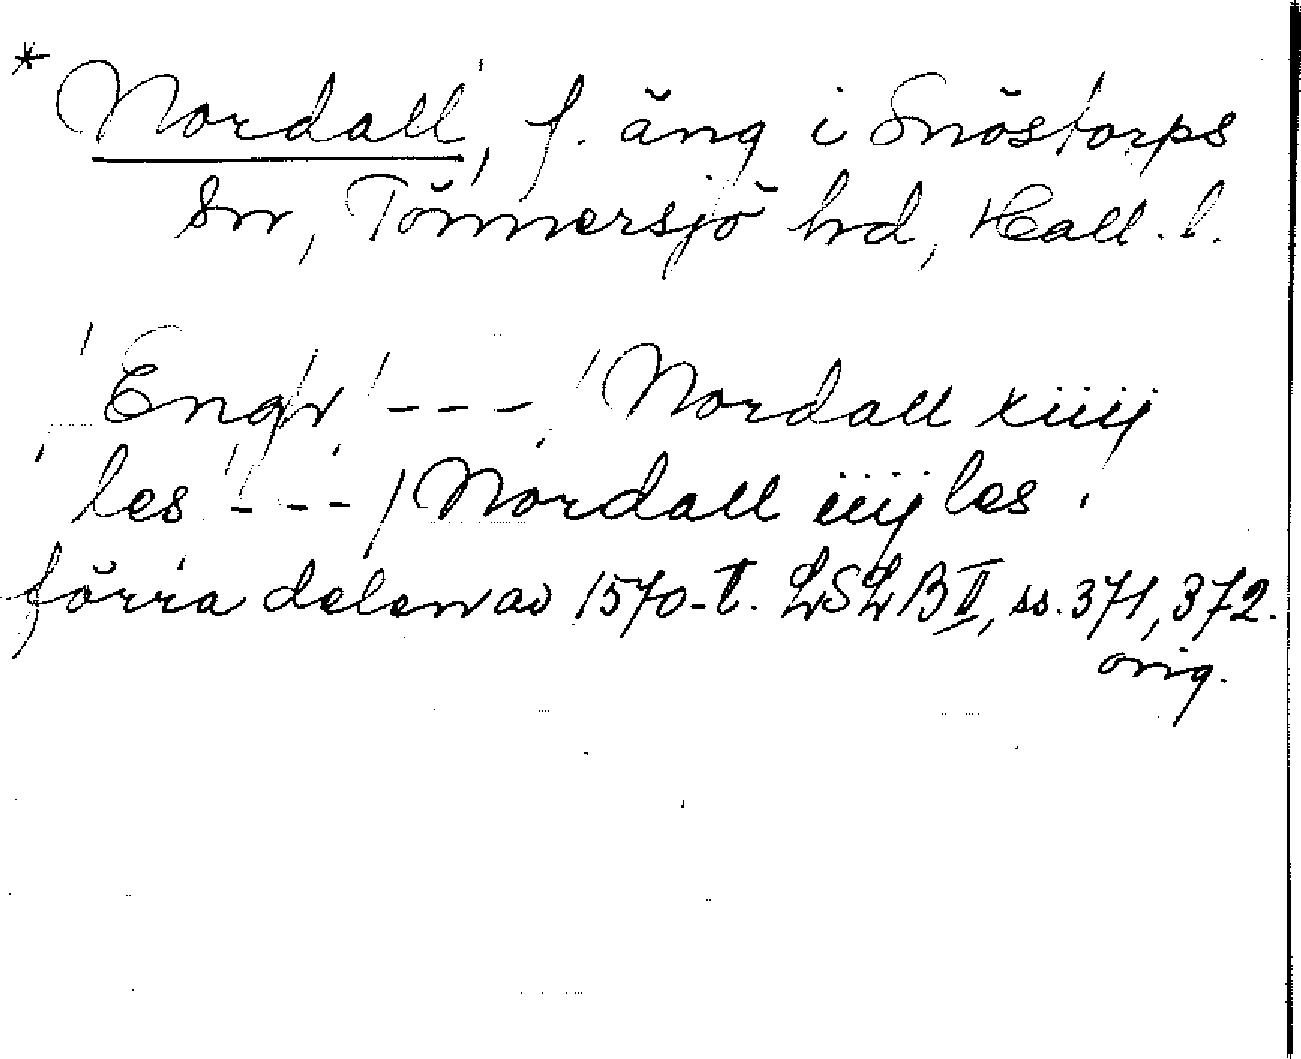 * Nordall, f. äng i Snöstorps
sn, Tönnersjö hd, Hall. l.
Engr --- / Nordall xiiij
les --- / Nordall iiij les
förra delen av 1570-t. LSLB II, ss. 371, 372.
orig.